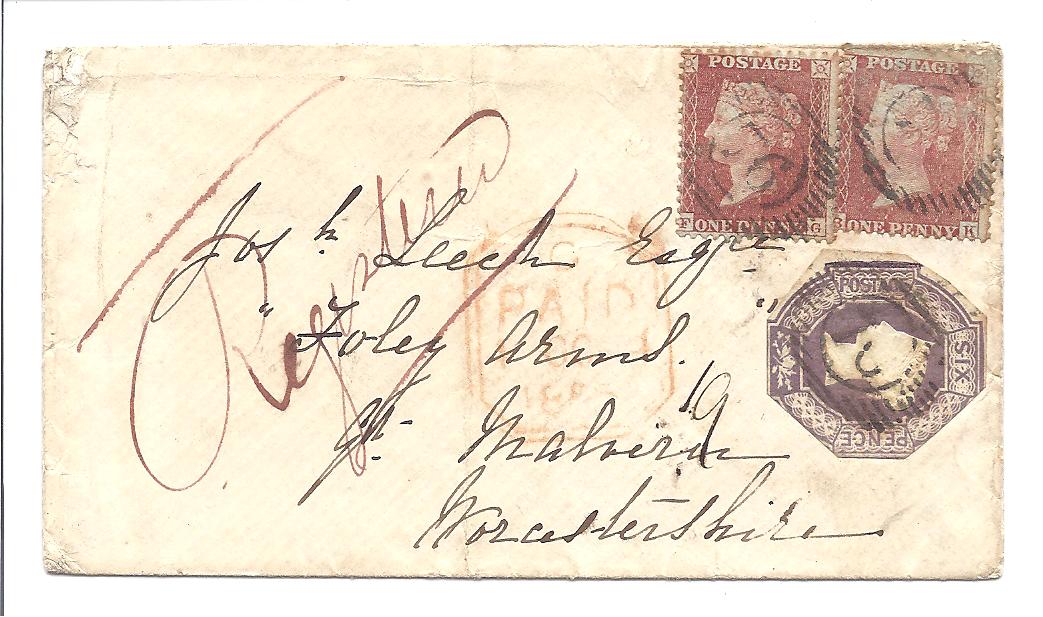 POSTAGE
F ONE PENNY G
POSTAGE
ONE PENNY K
Registered
Josh. Leech Esqre
"Foley Arms"
Gt. Malvern
Worcestershire
PAID
POSTAGE
SIX
PENCE